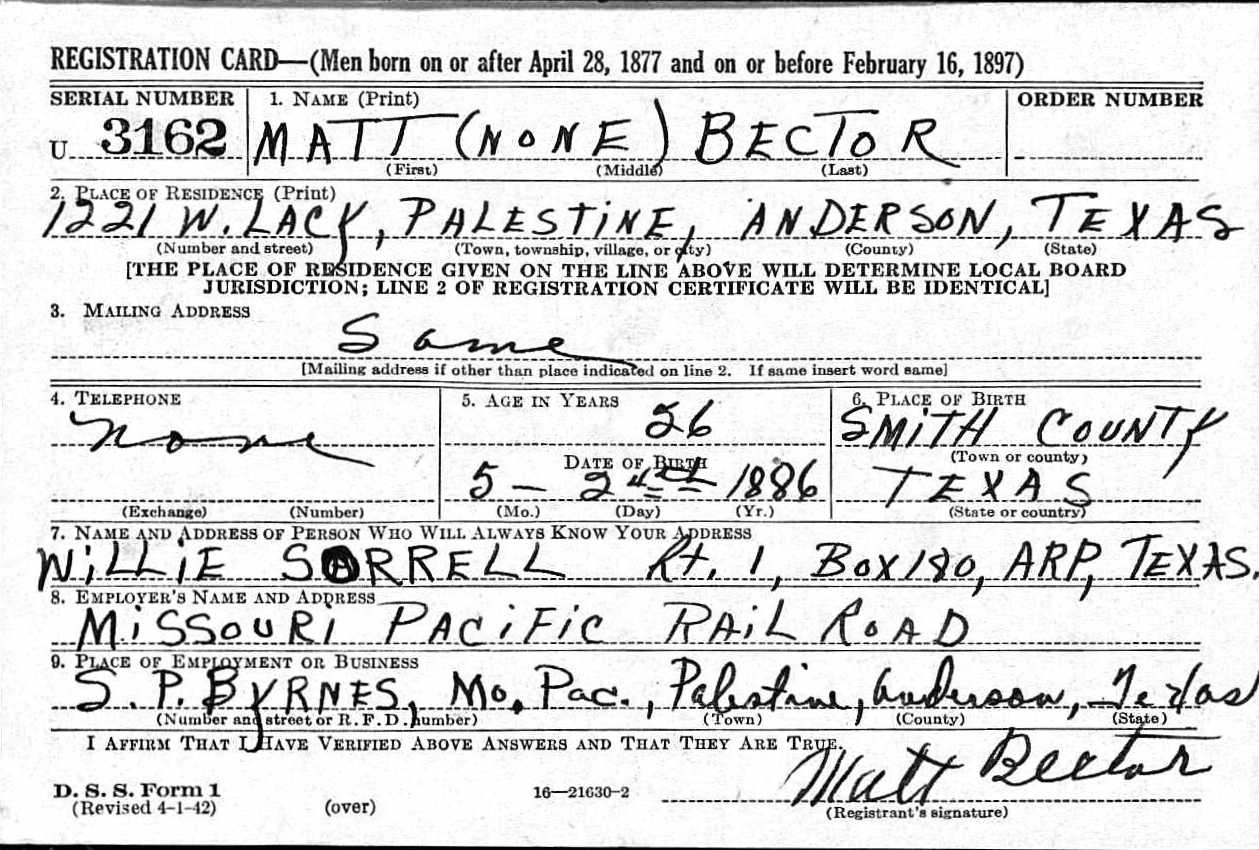 REGISTRATION CARD—(Men born on or after April 28, 1877 and on or before February 16, 1897)
SERIAL NUMBER 1. NAME (Print) ORDER NUMBER
U 3162 MATT (NONE) BECTOR
(First) (Middle) (Last)
2. PLACE OF RESIDENCE (Print)
1221 W. LACY, PALESTINE, ANDERSON, TEXAS
(Number and street) (Town, township, village, or city) (County) (State)
[THE PLACE OF RESIDENCE GIVEN ON THE LINE ABOVE WILL DETERMINE LOCAL BOARD
JURISDICTION; LINE 2 OF REGISTRATION CERTIFICATE WILL BE IDENTICAL]
3. MAILING ADDRESS
Same
[Mailing address if other than place indicated on line 2. If same insert word same]
4. TELEPHONE 5. AGE IN YEARS 6. PLACE OF BIRTH
none 56 SMITH COUNTY
(Town or county)
DATE OF BIRTH
5 — 24th 1886 TEXAS
(Exchange) (Number) (Mo.) (Day) (Yr.) (State or country)
7. NAME AND ADDRESS OF PERSON WHO WILL ALWAYS KNOW YOUR ADDRESS
WILLIE SARRELL Rt. 1, BOX 180, ARP, TEXAS.
8. EMPLOYER'S NAME AND ADDRESS
MISSOURI PACIFIC RAIL ROAD
9. PLACE OF EMPLOYMENT OR BUSINESS
S. P. BYRNES, Mo. Pac., Palestine, Anderson, Texas
(Number and street or R. F. D. number) (Town) (County) (State)
I AFFIRM THAT I HAVE VERIFIED ABOVE ANSWERS AND THAT THEY ARE TRUE.
Matt Bector
D. S. S. Form 1
(Revised 4-1-42) (over) 16—21630-2
(Registrant's signature)